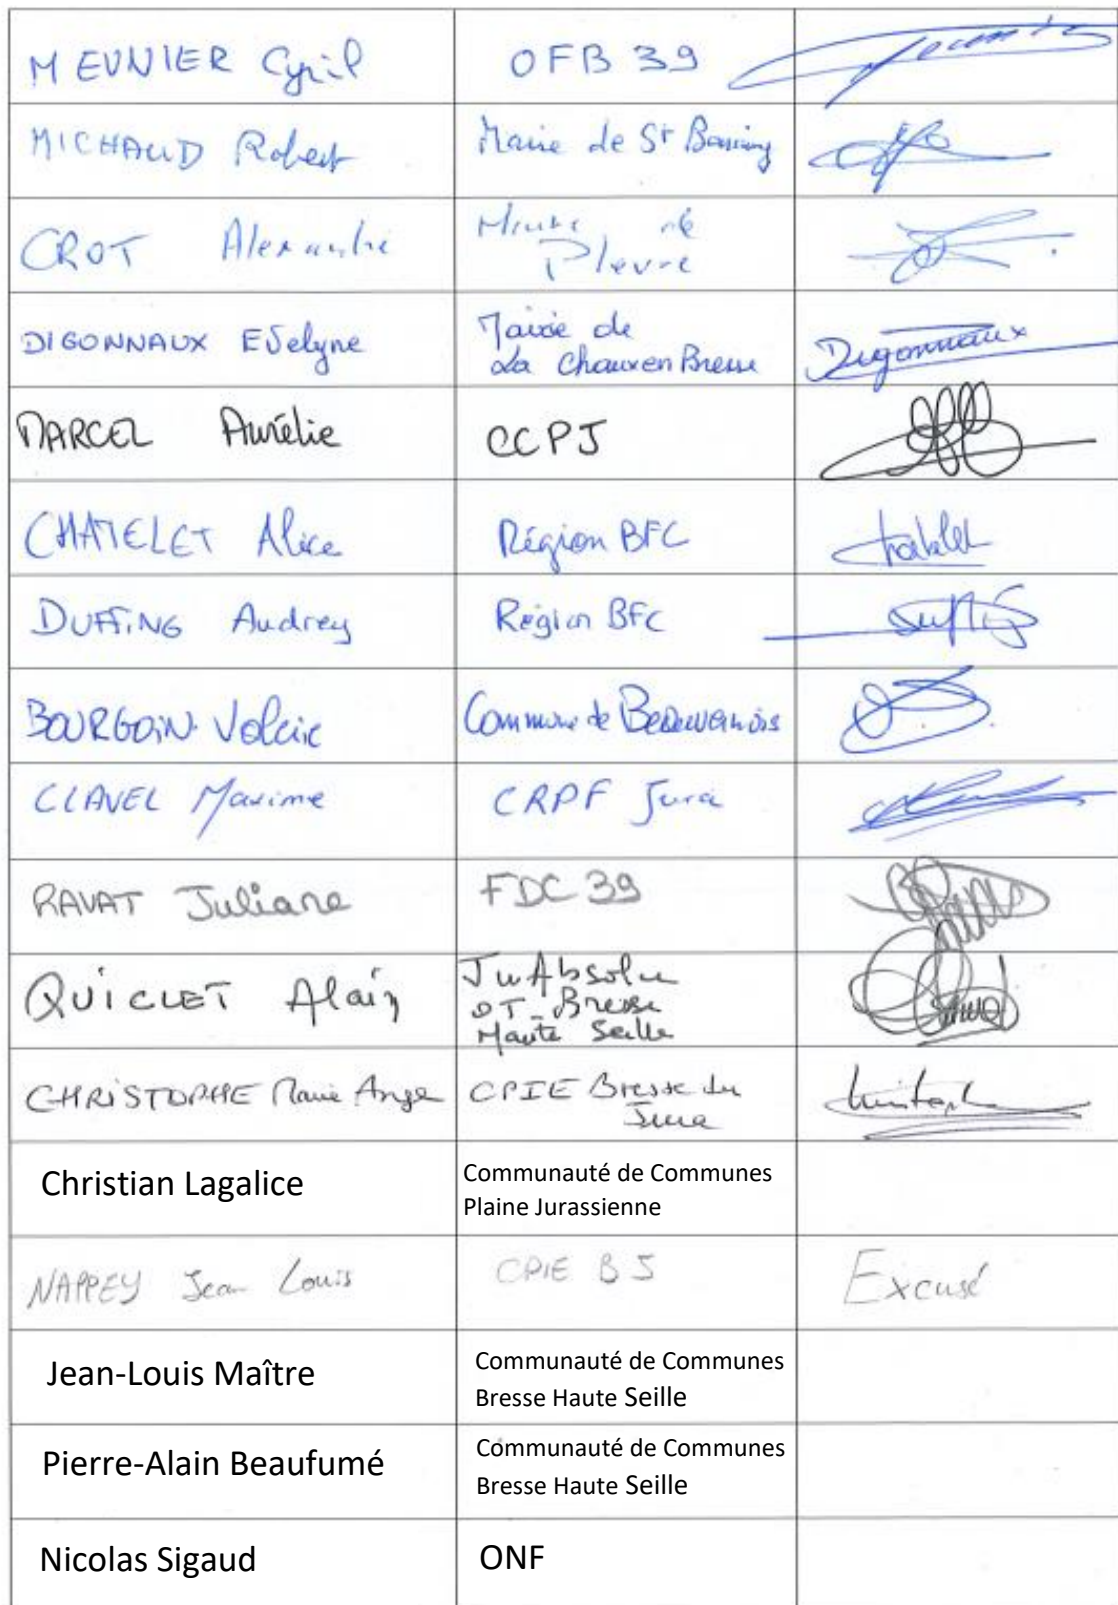 MEUNIER Cyril OFB 39
MICHAUD Robert Mairie de St Baraing
CROT Alexandre Mairie de
Pleure
DIGONNAUX Evelyne Mairie de
La Chaux en Bresse Digonnaux
MARCEL Aurélie CCPJ
CHATELET Alice Région BFC Chatelet
DUFFING Audrey Région BFC Duffing
BOURGOIN Commune de Beauvernois
CLAVEL Maxime CRPF Jura
RAVAT Juliane FDC 39
QUICLET Alain JurAbsolu
OT-Bresse
Haute Seille
CHRISTOPHE Marie Ange CPIE Bresse du
Jura
Christian Lagalice Communauté de Communes
Plaine Jurassienne
NAPPEY Jean Louis CPIE BJ Excusé
Jean-Louis Maître Communauté de Communes
Bresse Haute Seille
Pierre-Alain Beaufumé Communauté de Communes
Bresse Haute Seille
Nicolas Sigaud ONF